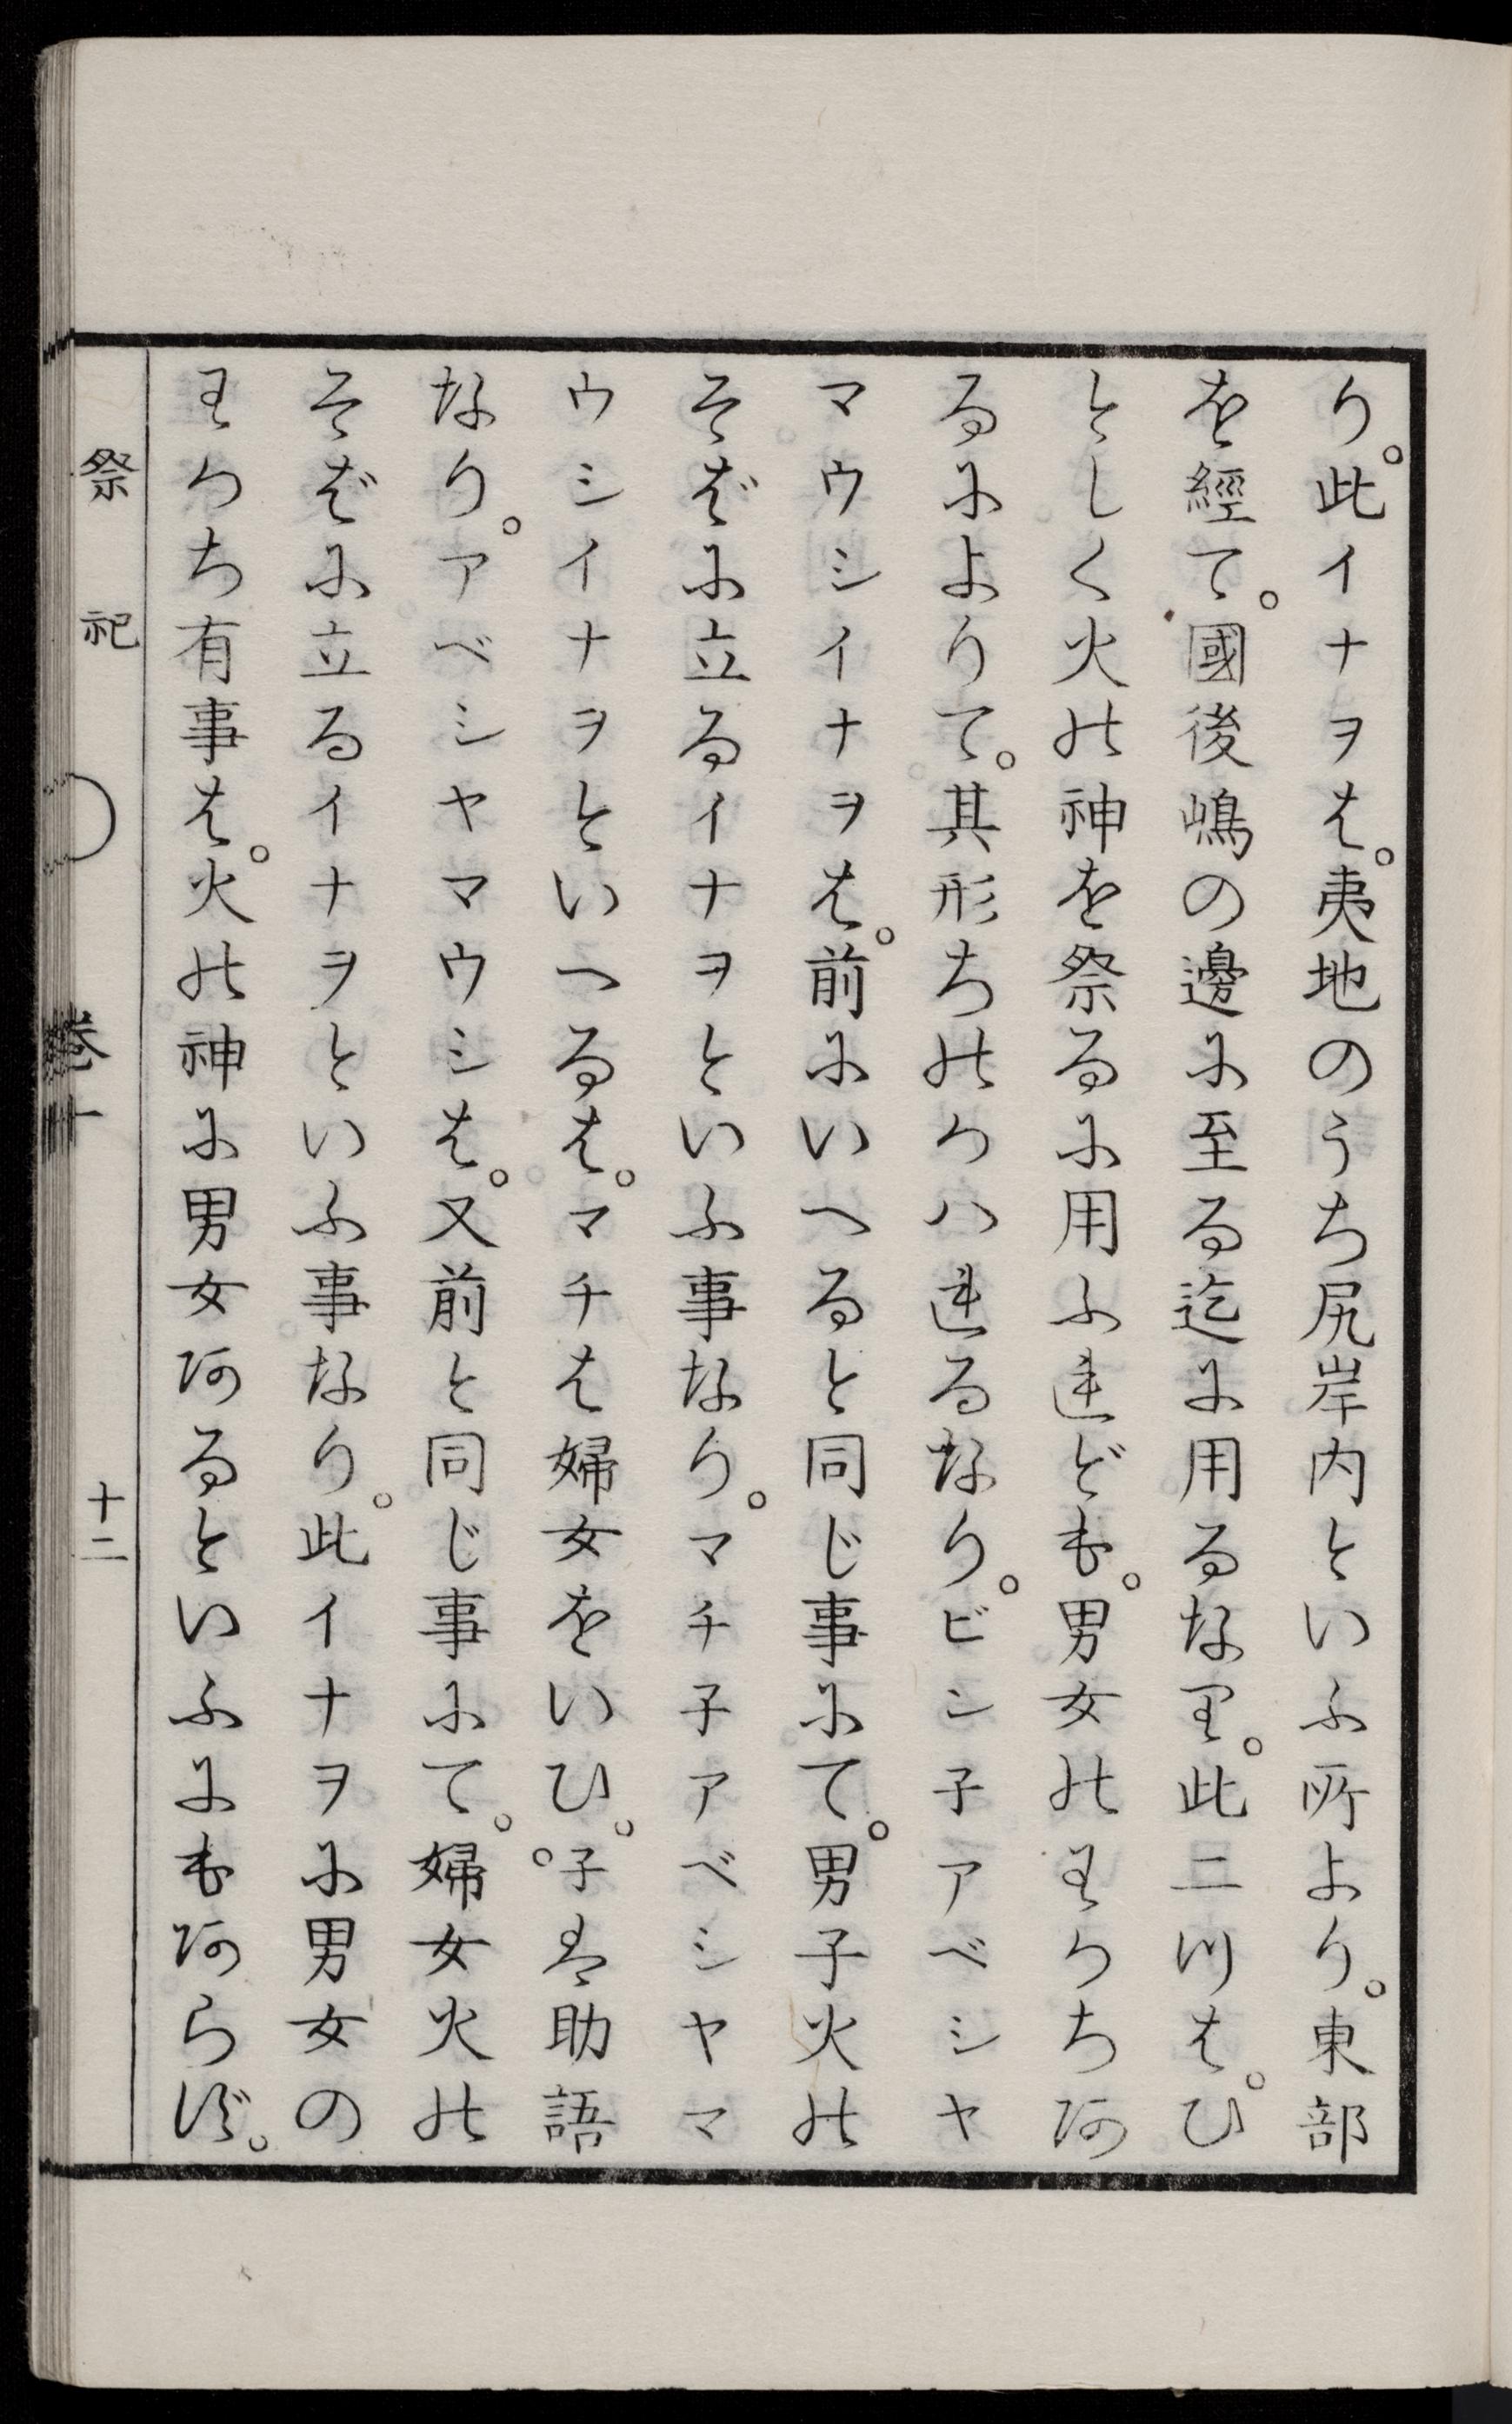 り。此イナヲは。夷地のうち尻岸内といふ所より。東部
を經て。國後嶋の邊に至る迄に用るなり。此二つは。ひ
としく火の神を祭るに用ふれども。男女のわかちあ
るによりて。其形ちのかハれるなり。ビシ子アベシヤ
マウシイナヲは。前にいへると同じ事にて。男子火の
そばに立るイナヲといふ事なり。マチ子アベシヤマ
ウシイナヲといへるは。マチは婦女をいひ。子は助語
なり。アベシヤマウシは。又前と同じ事にて。婦女火の
そばに立るイナヲといふ事なり。此イナヲに男女の
わかち有事は。火の神に男女あるといふにもあらず。
祭祀 巻十 十二